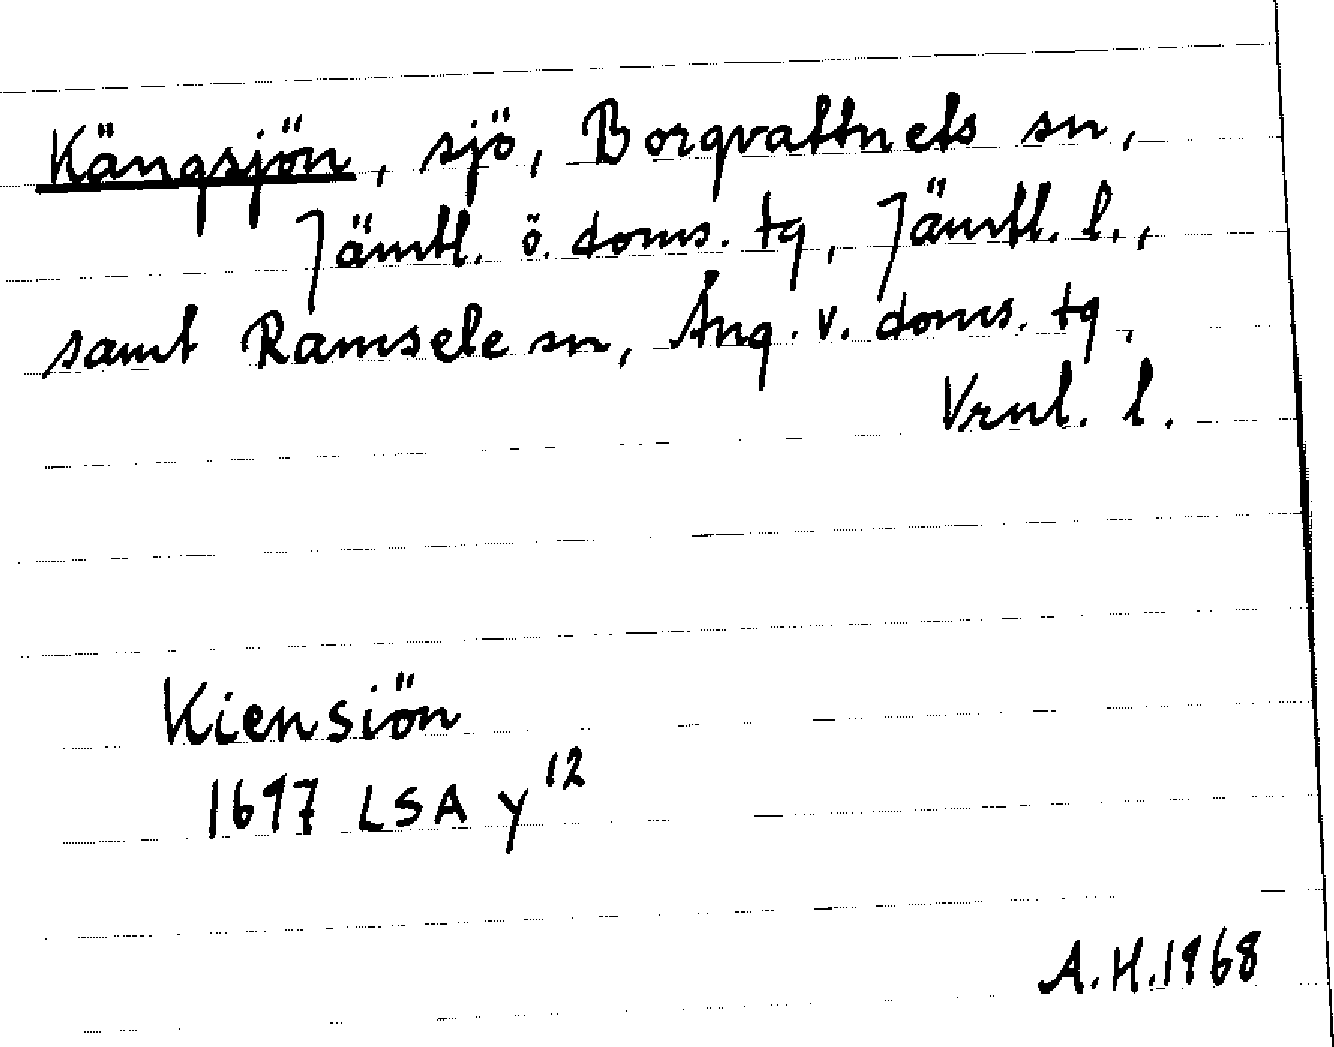 Kängsjön, sjö, Borgvattnets sn,
Jämtl. ö. doms. tg, Jämtl. l.,
samt Ramsele sn, Ång. v. doms. tg,
Vrnl. l.
Kiensiön
1697 LSA Y 12
A.H.1968